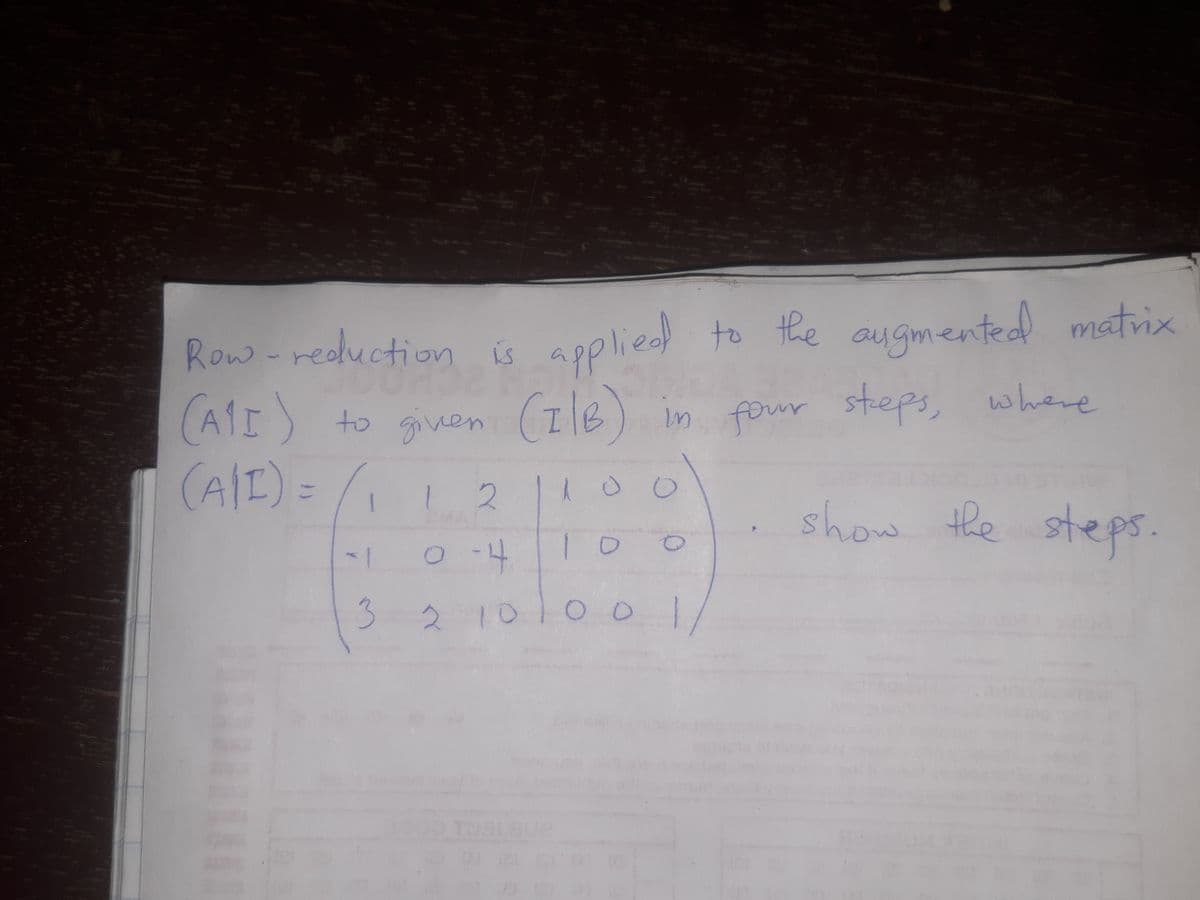 Row-reduction is applied to the augmented matrix
(A|I) to given (I|B) in four steps, where
(A|I) = ( 1 1 2 | 1 0 0
-1 0 -4 | 1 0 0
3 2 10 | 0 0 1 ) . show the steps.